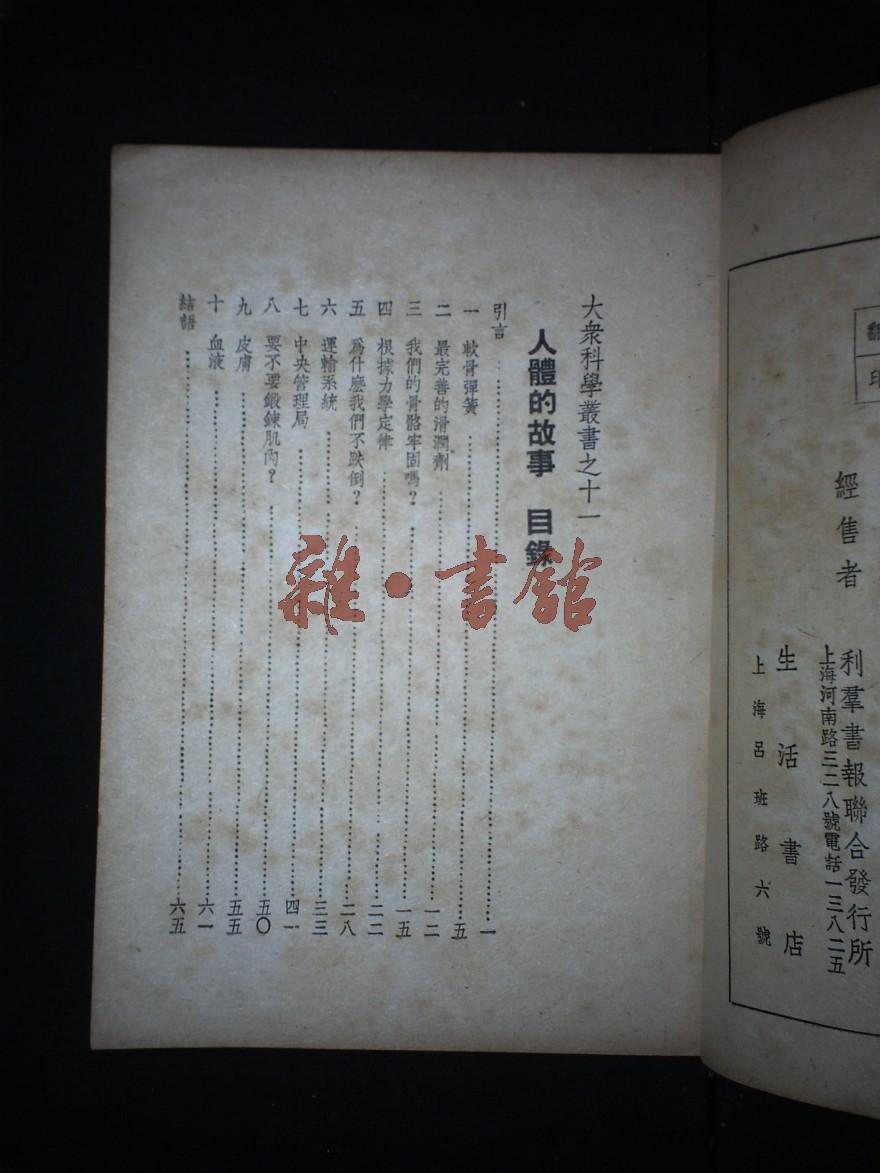 經售者
利羣書報聯合發行所
上海河南路三二八號電話一三八二五
生活書店
上海呂班路六號
印
大衆科學叢書之十一
人體的故事 目錄
引言 一
一 軟骨彈簧 五
二 最完善的滑潤劑 一二
三 我們的骨骼牢固嗎? 一五
四 根據力學定律 二二
五 爲什麽我們不跌倒? 二八
六 運輸系統 三三
七 中央管理局 四一
八 要不要鍛鍊肌肉? 五〇
九 皮膚 五五
十 血液 六一
結語 六五
雜·書館